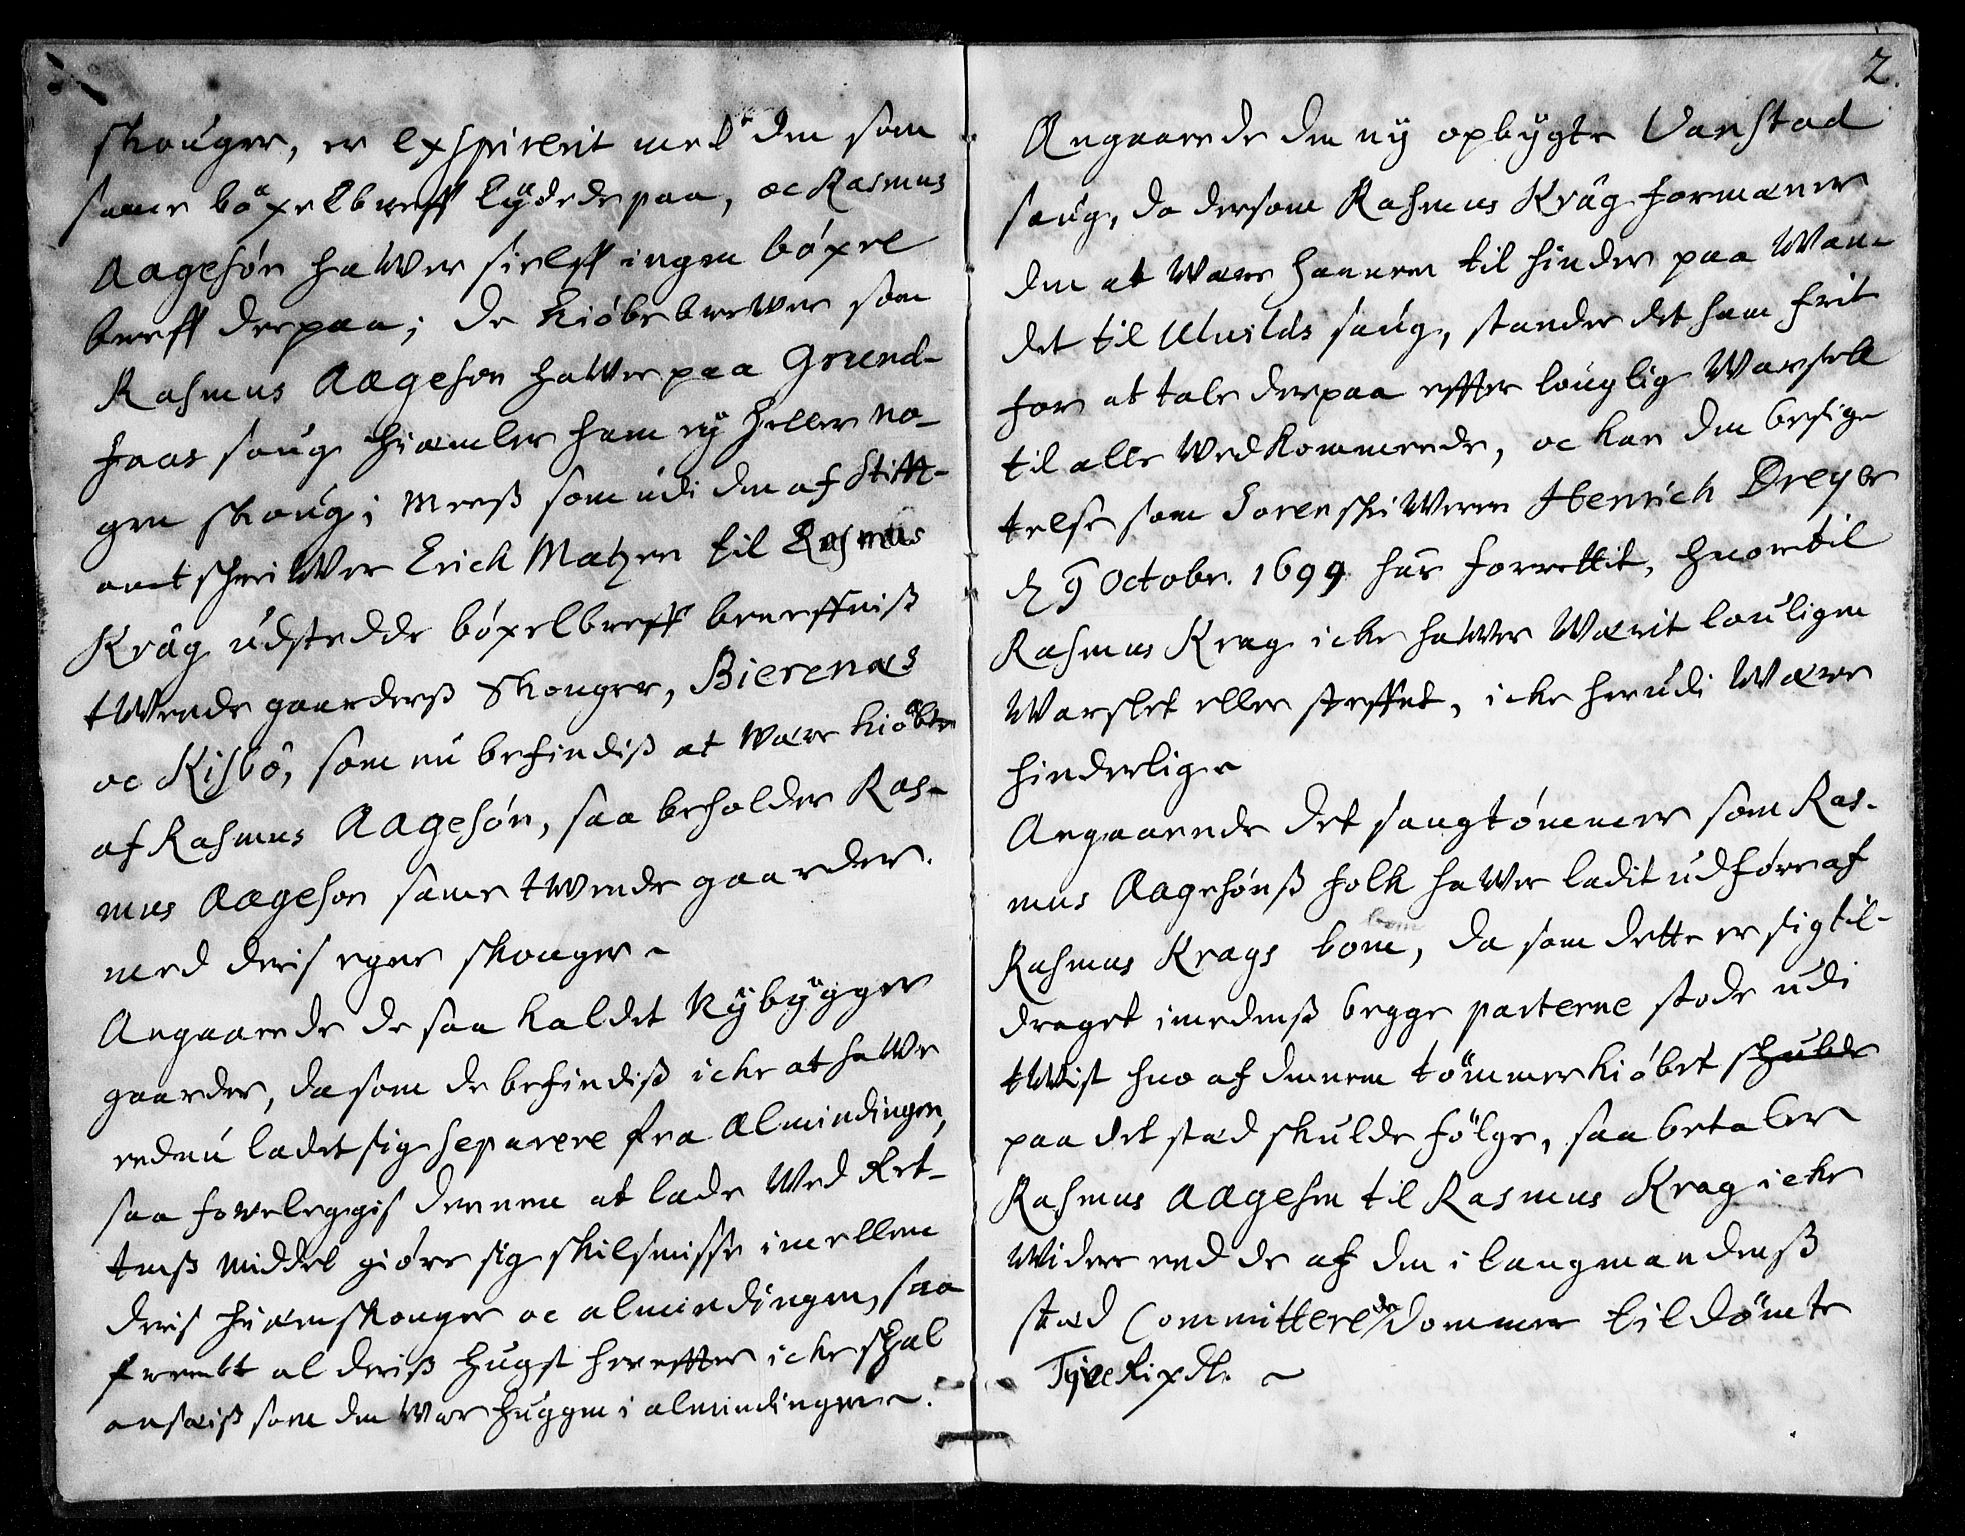 skouger, er exspirerit med den som
same böxelbreff lÿdede paa, oc Rasmus
Aagesøn hawer sielff ingen böxel
breff derpaa; de kiöbebrewer som
Rasmus Aagesøn hawer paa Grund-
faas saug hiemler ham eÿ heller no-
gen skoug; Mens som udi den af Stift-
amtschriwer Erich Matzen til Rasmus
Krag udstedde böxelbreff benefniss
twende gaarders Skouger, Bierenæs
oc Kisbö, som nu befindiss at Wære kiöbte
af Rasmus Aagesøn, saa beholder Ras-
mus Aagesøn same twende gaarder
med deris egne skouger
Angaaende de saa kaldet Nÿbÿgger
gaarder, da som de befindiss icke at hawe
endnu ladet sig separere fra Almindingen,
saa foreleggis dennem at lade Wed Ret-
tens Middel giöre sig skilsmisse imellem
deris hiemskouger oc almindingen, saa
fremt al deriss hugst herefter icke schal
ansees som den War huggen i almindingen.
2.
Angaaende den nÿ opbÿgte Vanstad
saug, da dersom Rasmus Krag formæner
den at Være hannem til hinder paa Wan-
det til Ulvilds saug, stander det ham frit
for at tale derpaa effter louglig Warsell
til alle Wedkommende, oc kan den besig-
telse som Sorenskriweren Henrich Dreyer
d 9 Octobr. 1699 har forrettit, hvortil
Rasmus Krag icke hawer Wærit louligen
Warslet eller steffnet, icke herudi Wære
hinderlig
Angaaende det saugtömmer som Ras-
mus Aagesønss folk hawer ladit udføre af
Rasmus Krags bom, da som dette er sig til-
draget imedenss begge parterne stode udi
twist hvo af dennem tömmerkiöbet schulde
paa det sted skulde fölge, saa betaler
Rasmus Aagesen til Rasmus Krag icke
Widere end de af den i laugmandenss
sted Committerede dommer tildömte
Tÿve Rixdr.